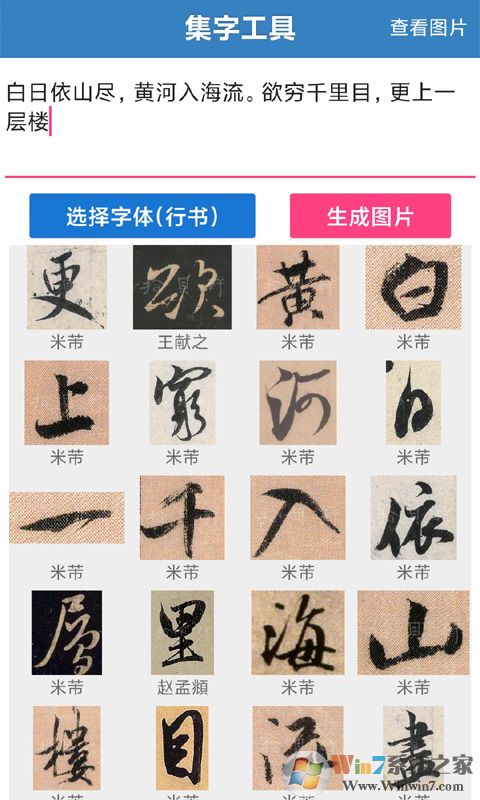 集字工具
查看图片
白日依山尽, 黄河入海流。欲穷千里目, 更上一
层楼
选择字体(行书)
生成图片
更 欲 黄 白
米芾 王献之 米芾 米芾
上 窮 河 日
米芾 米芾 米芾 米芾
一 千 入 依
米芾 米芾 米芾 米芾
層 里 海 山
米芾 赵孟頫 米芾 米芾
樓 目 流 盡
Win7系统之家
Www.Winwin7.com